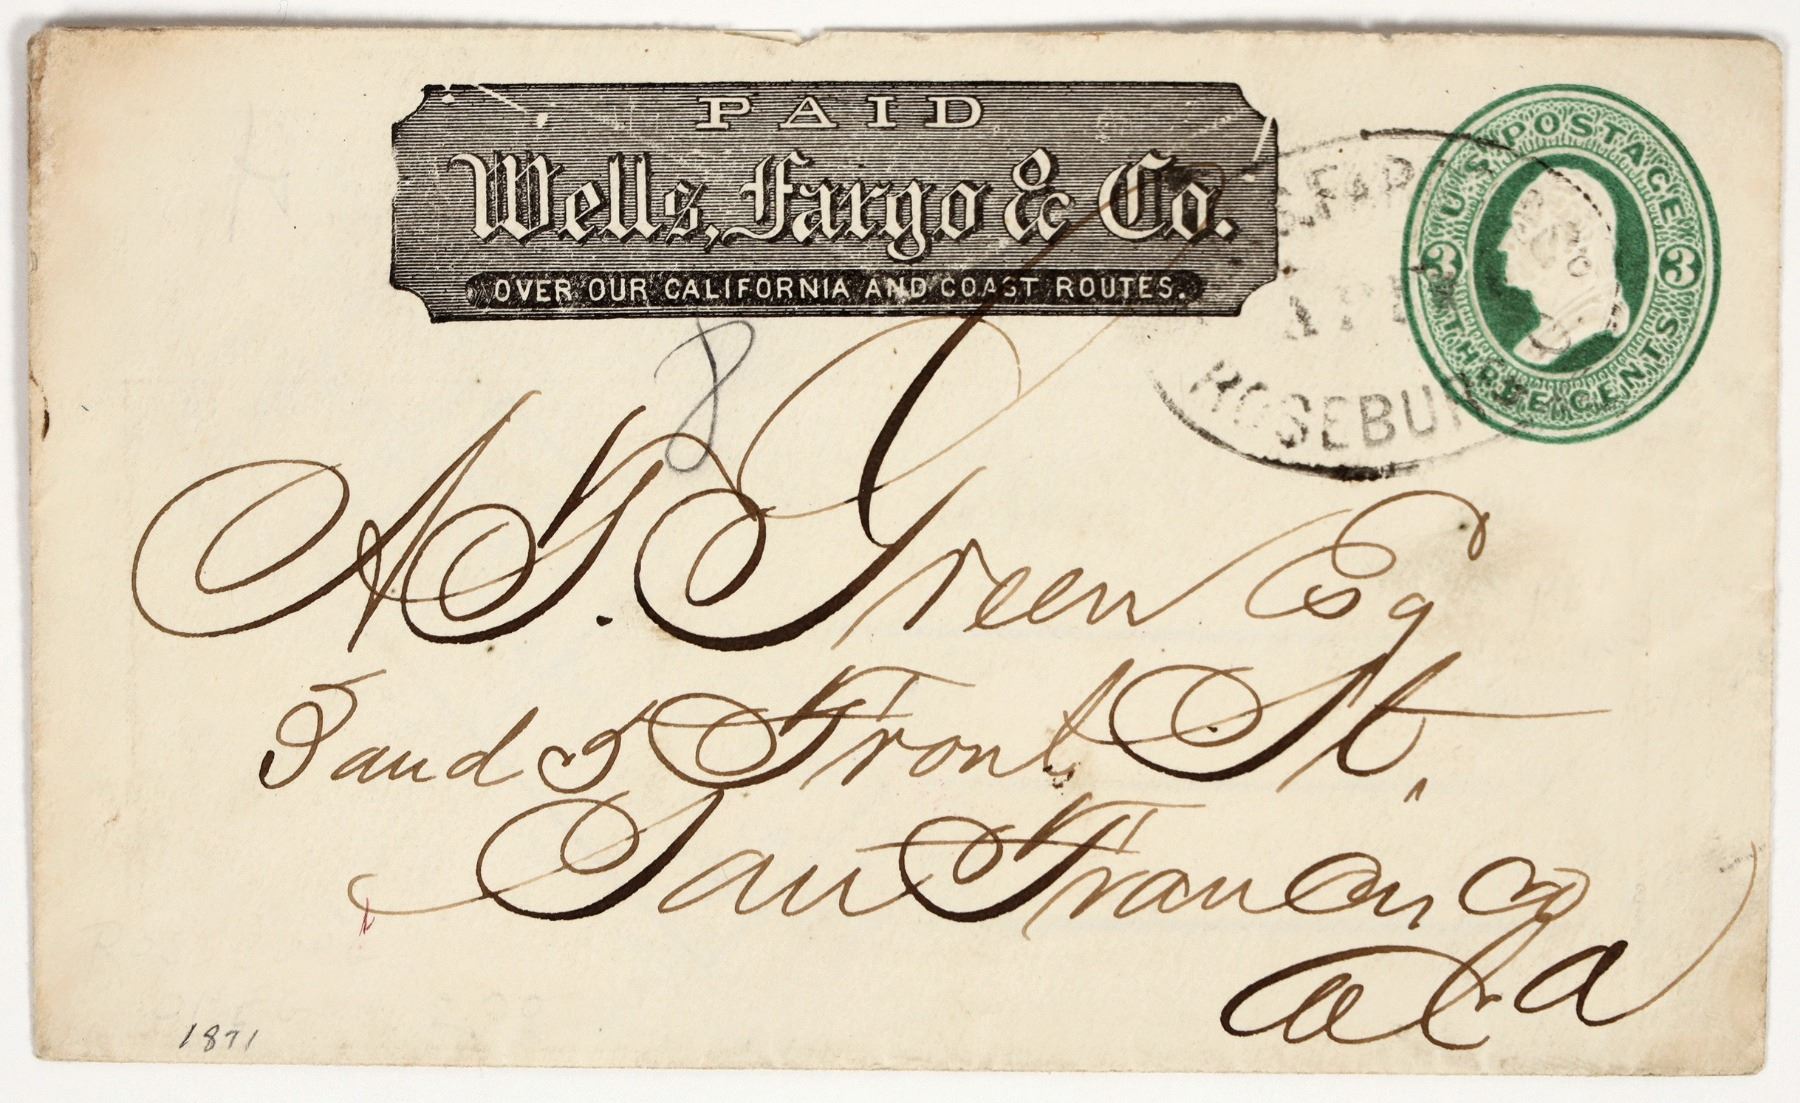 PAID
Wells, Fargo & Co.
OVER OUR CALIFORNIA AND COAST ROUTES.
U.S. POSTAGE
3 3
THREE CENTS
APR
ROSEBU
8
A G. Green Esq
3 and 5 Front St.
San Francisco
Cala
1871